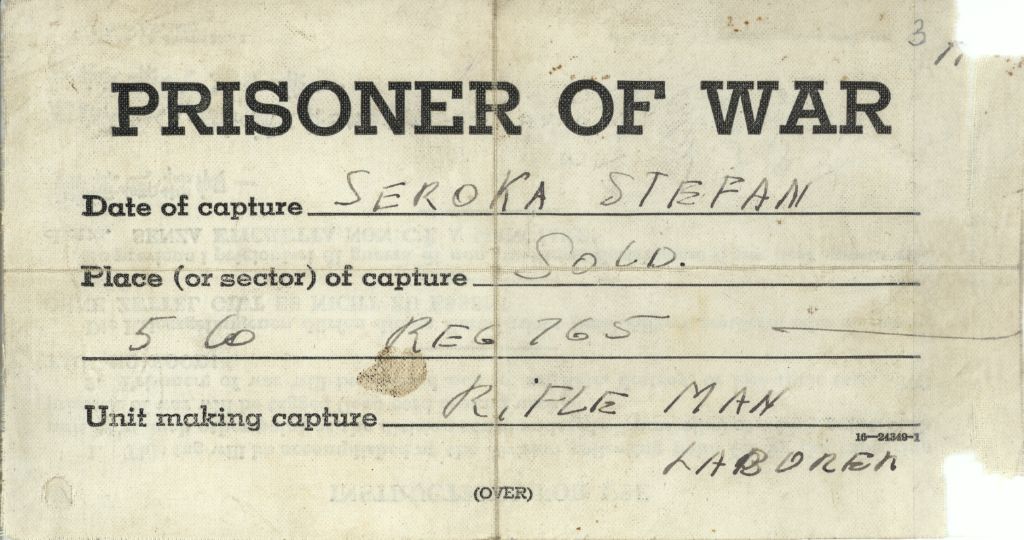 3
PRISONER OF WAR
Date of capture SEROKA STEFAN
Place (or sector) of capture SOLD.
5 Co REG 765
Unit making capture RIFLE MAN
16—24349-1
LABORER
(OVER)